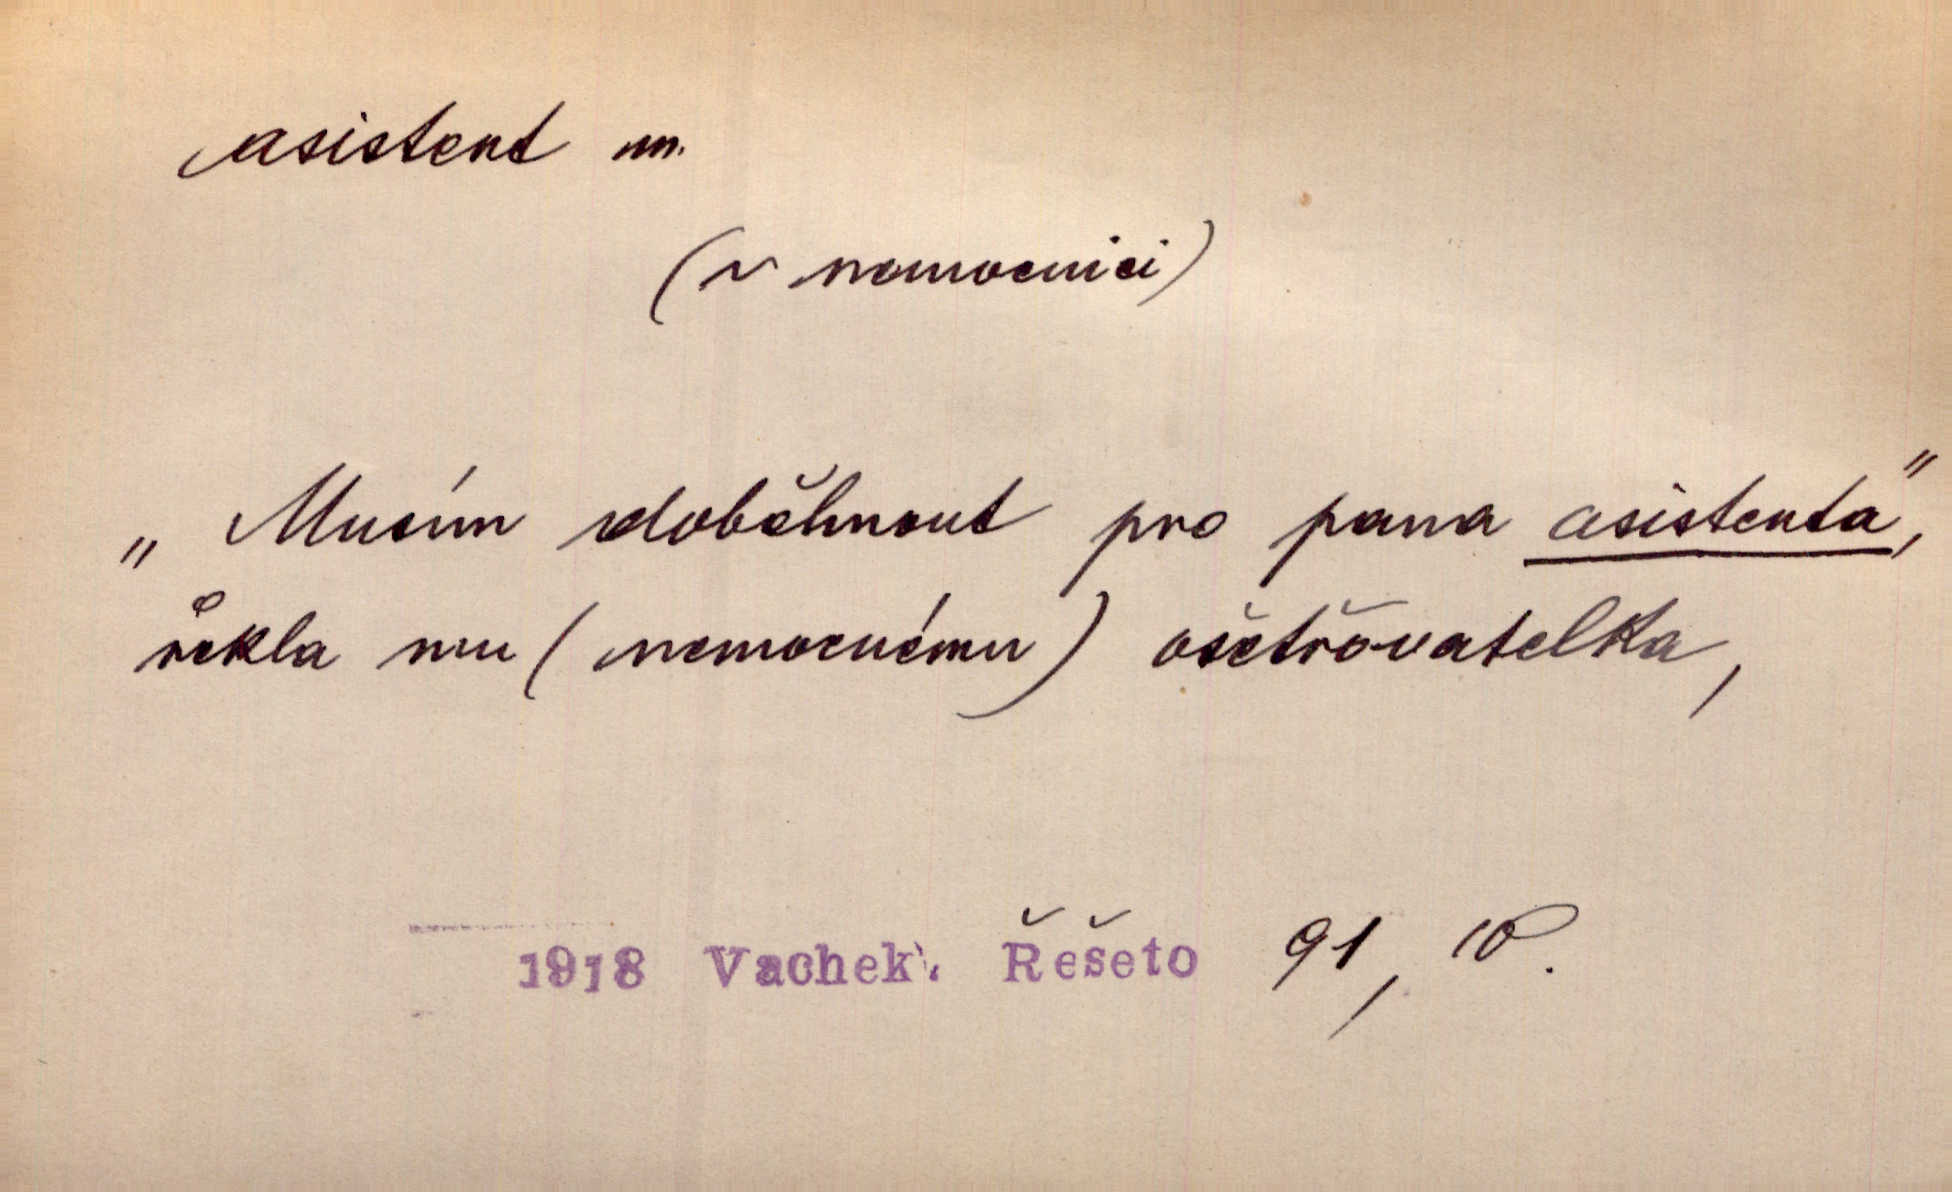 asistent m.
(v nemocnici)
„Musím doběhnout pro pana asistenta",
řekla mu (nemocnému) ošetřovatelka,
1918 Vachek. Řešeto 91, 10.